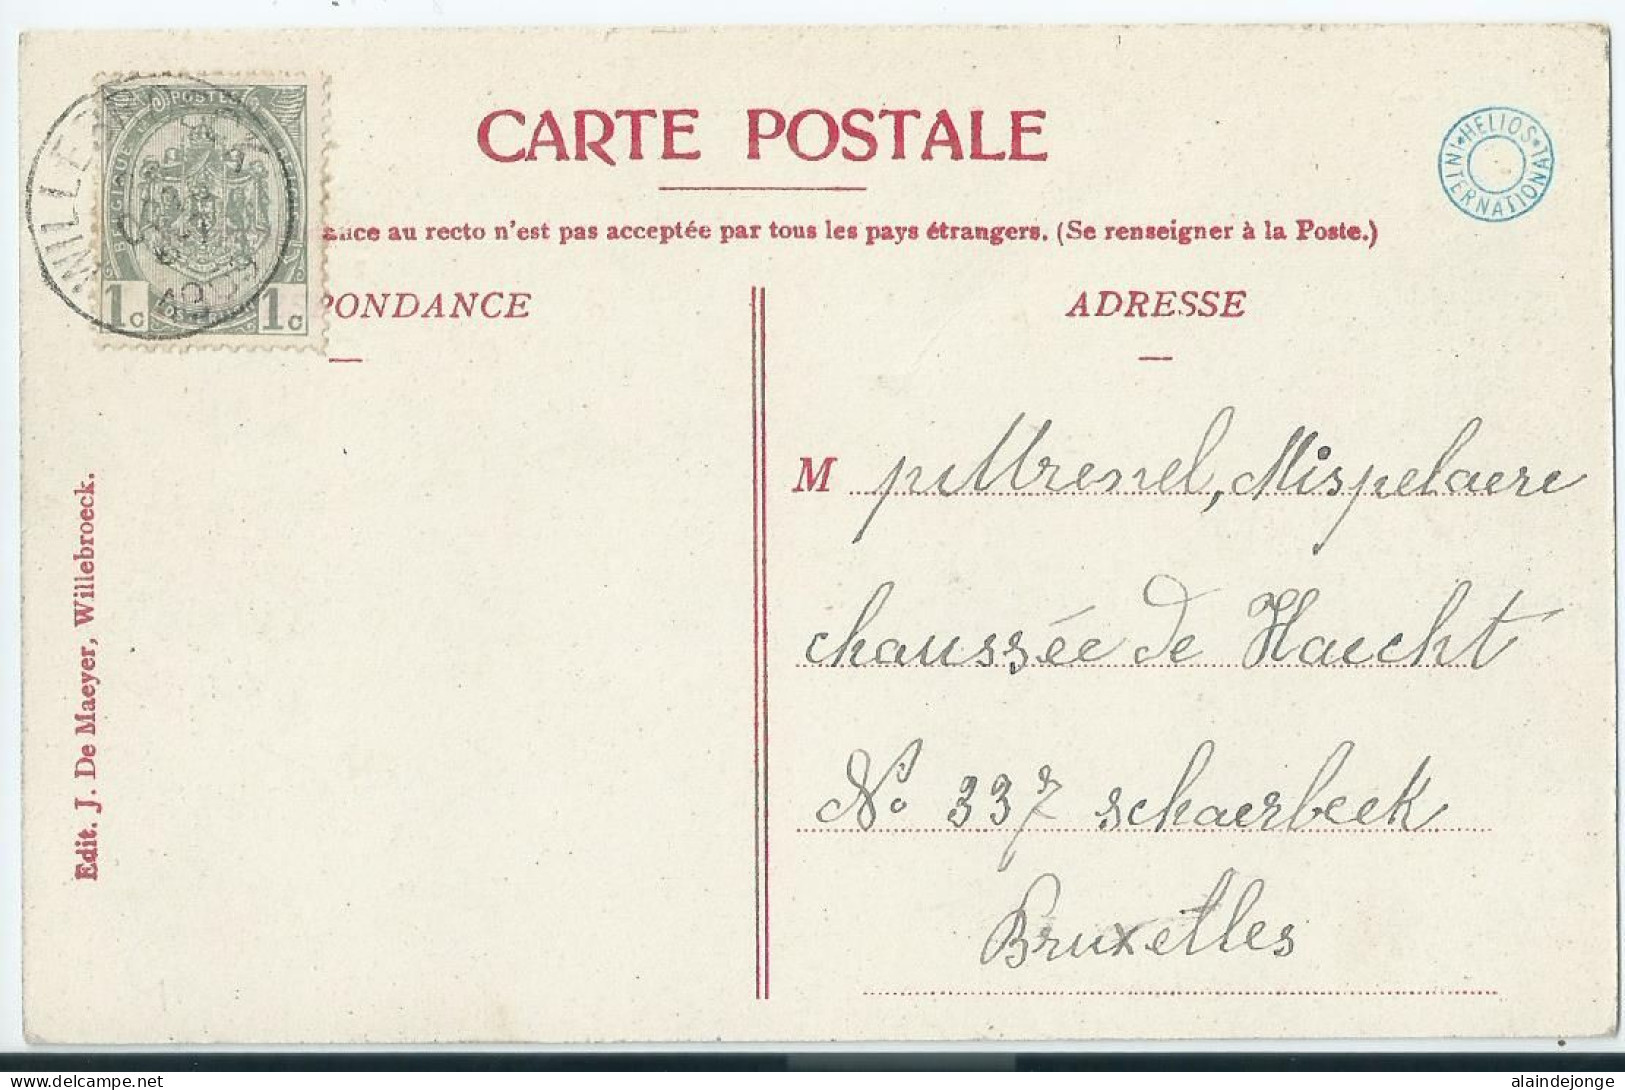 CARTE POSTALE
HELIOS
INTERNATIONAL
POSTES
BELGIQUE
1c 1c
ance au recto n'est pas acceptée par tous les pays étrangers. (Se renseigner à la Poste.)
PONDANCE
ADRESSE
M Mispelaere
chaussée de Haecht
No 337 schaerbeek
Bruxelles
Edit. J. De Maeyer, Willebroeck.
delcampe.net
alaindejonge